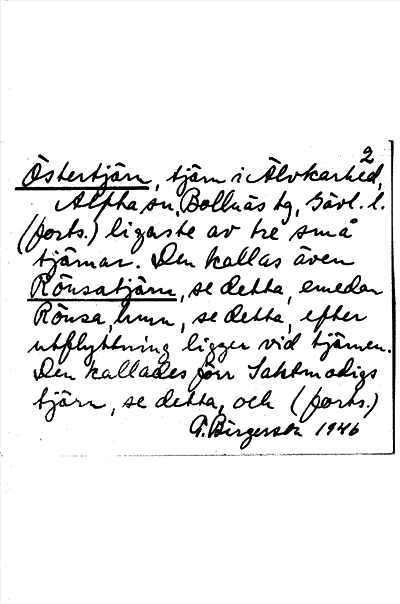 2
Östertjärn, tjärn i Älvkarhed,
Alfta sn, Bollnäs tg, Gävl. l.
(forts.) ligaste av tre små
tjärnar. Den kallas även
Rönsatjärn, se detta, emedan
Rönsa, hmn, se detta, efter
utflyttning ligger vid tjärnen.
Den kallades förr Saktmodigs
tjärn, se detta, och (forts.)
G. Birgersson 1946